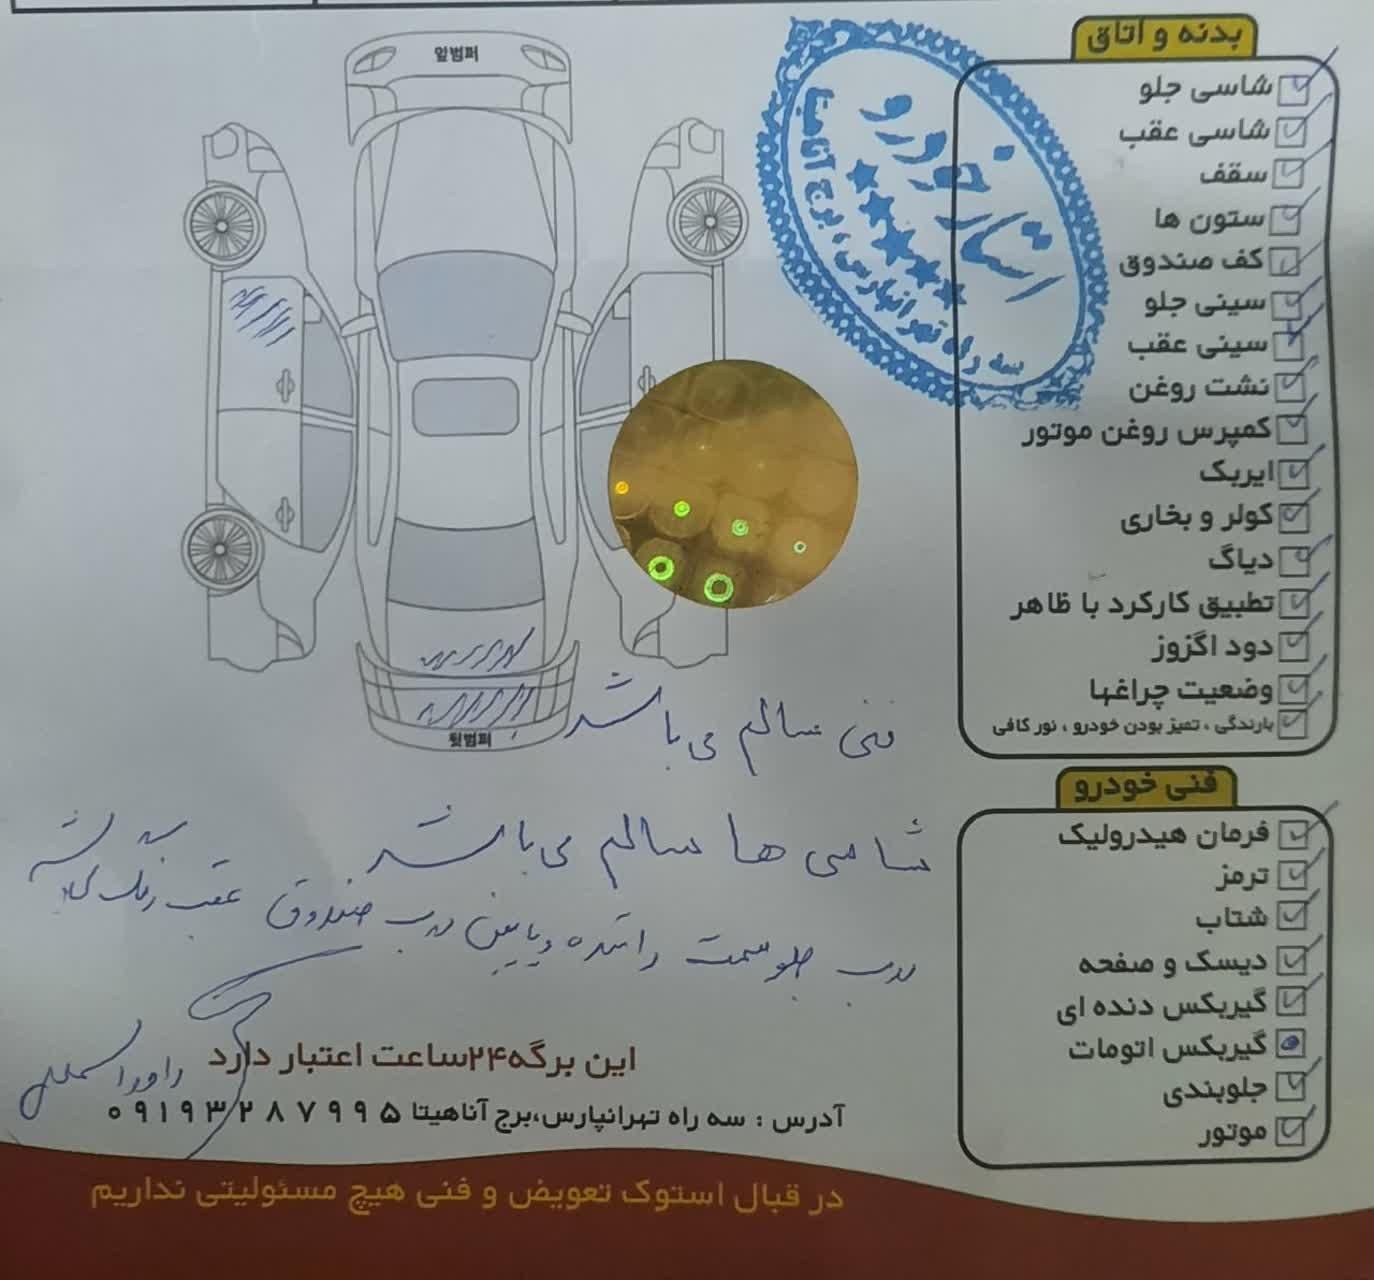 앞범퍼
뒷범퍼
استار خودرو
سه راه تهرانپارس، برج آناهیتا
بدنه و اتاق
شاسی جلو
شاسی عقب
سقف
ستون ها
کف صندوق
سینی جلو
سینی عقب
نشت روغن
کمپرس روغن موتور
ایربک
کولر و بخاری
دیاگ
تطبیق کارکرد با ظاهر
دود اگزوز
وضعیت چراغها
بارندگی ، تمیز بودن خودرو ، نور کافی
فنی خودرو
فرمان هیدرولیک
ترمز
شتاب
دیسک و صفحه
گیربکس دنده ای
گیربکس اتومات
جلوبندی
موتور
فنی سالم می باشد
شاسی ها سالم می باشد
درب جلو سمت راننده و پایین درب صندوق عقب رنگ
این برگه ۲۴ساعت اعتبار دارد
آدرس : سه راه تهرانپارس،برج آناهیتا ۰۹۱۹۳۲۸۷۹۹۵
در قبال استوک تعویض و فنی هیچ مسئولیتی نداریم